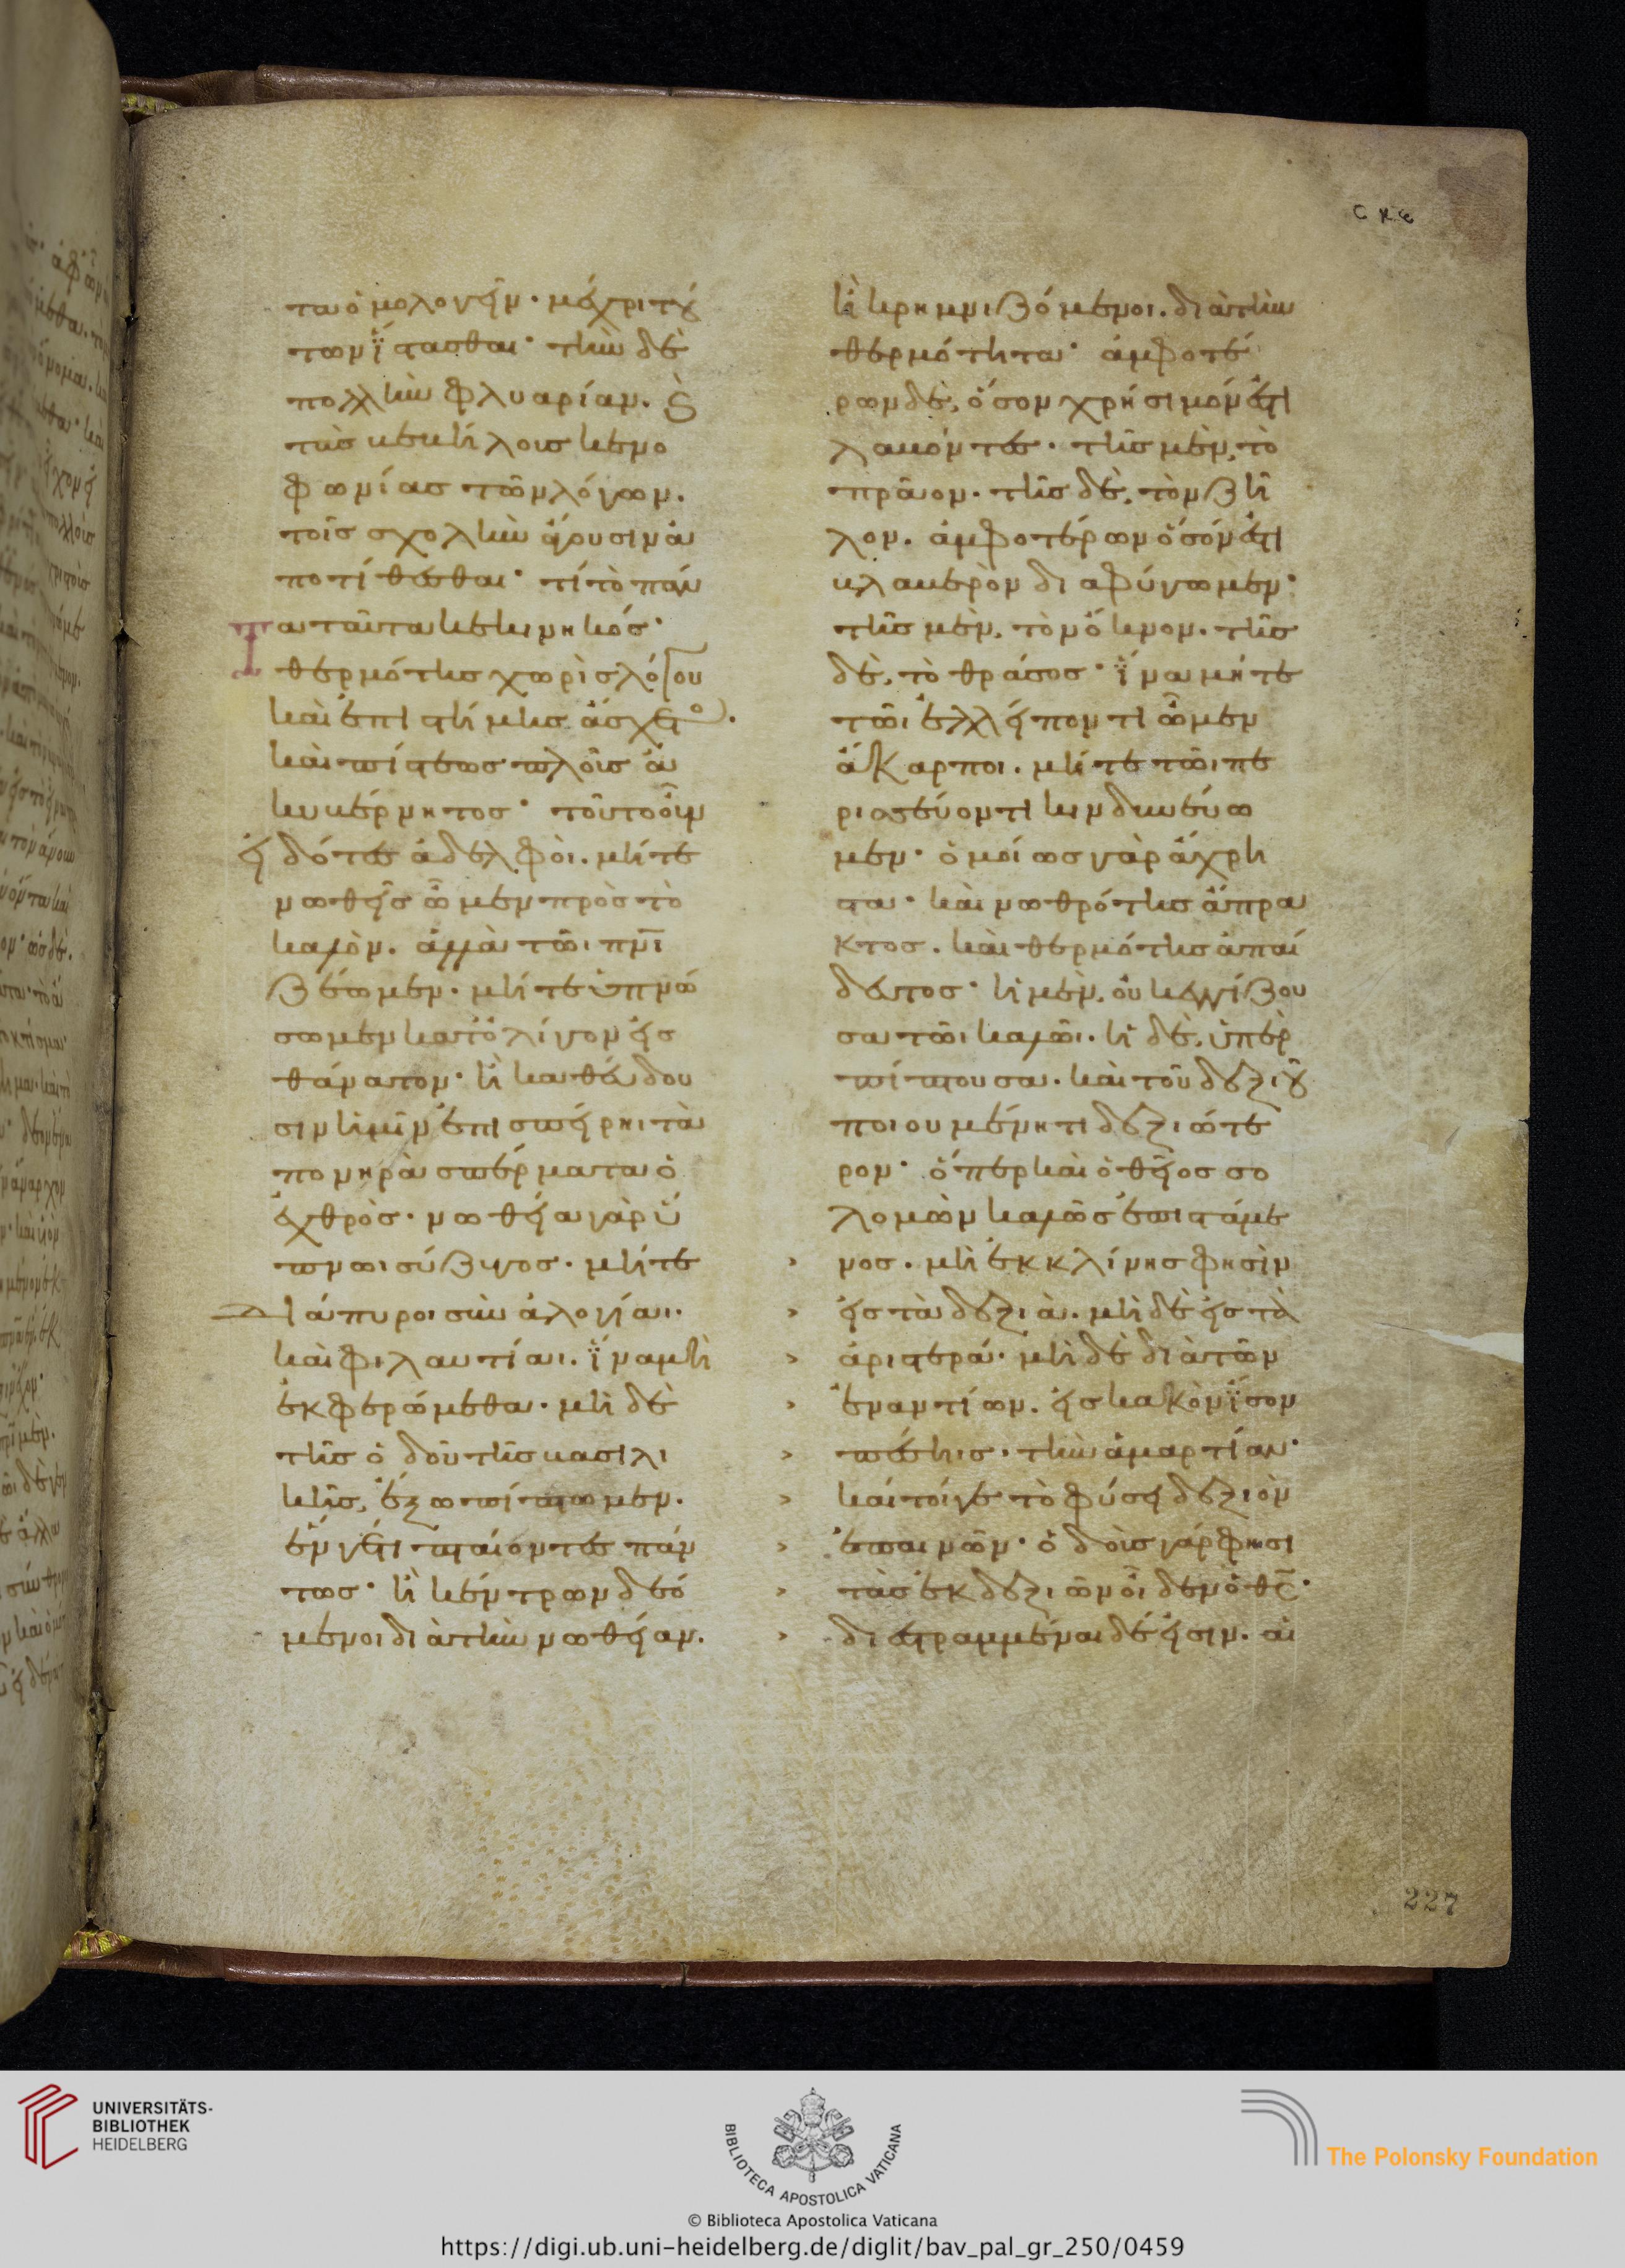 σκε
τα ὁμολογεῖν. μέχρι τού
των ἵστασθαι· τὴν δὲ
πολλὴν φλυαρίαν. καὶ
τὰς βεβήλους κενο
φωνίας τῶν λόγων.
τοῖς σχολὴν ἄγουσιν ἀ
ποτίθεσθαι· τί τὸ πάν
τα ταῦτα κεκινηκός·
θερμότης χωρὶς λόγου
καὶ ἐπιστήμης ἄσχετο.
καὶ πίστεως πλοῦς ἀ
κυβέρνητος· τοῦτο οὖν
εἰδότες ἀδελφοὶ. μήτε
νωθεῖς ὦμεν πρὸς τὸ
καλὸν. ἀλλὰ τῶι πνι
ζέωμεν. μήτε ὑπνώ
σωμεν κατ' ὀλίγον εἰς
θάνατον· ἢ καθεύδου
σιν ἡμῖν ἐπισπείρηι τὰ
πονηρὰ σπέρματα ὁ
ἐχθρὸς. νωθεία γὰρ ὕ
πνωι σύζυγος. μήτε
διάπυροι σὺν ἀλογίαι.
καὶ φιλαυτίαι. ἵνα μὴ
ἐκφερώμεθα. μὴ δὲ
τῆς ὁδοῦ τῆς βασιλι
κῆς, ἔξω πίπτωμεν.
ἕν γέ τι πταίοντες πάν
τως· ἢ κέντρων δεό
μενοι διὰ τὴν νωθείαν.
ἢ κρημνιζόμενοι. διὰ τὴν
θερμότητα· ἀμφοτέ
ρων δὲ, ὅσον χρήσιμόν ἐστι
λαβόντες. τῆς μὲν, τὸ
πρᾶον. τῆς δὲ, τὸν ζῆ
λον. ἀμφοτέρων ὅσόν ἐστι
βλαβερὸν διαφύγωμεν·
τῆς μὲν, τὸν ὄκνον. τῆς
δὲ, τὸ θράσος· ἵνα μήτε
τῶι ἐλλείποντι ὦμεν
ἄκαρποι. μήτε τῶι πε
ριττεύοντι κινδυνεύω
μεν· ὁμοίως γὰρ ἄχρη
στα· καὶ νωθρότης ἄπρα
κτος. καὶ θερμότης ἀπαί
δευτος· ἡ μὲν, οὐκ ἐγγίζου
σα τῶι καλῶι. ἡ δὲ, ὑπερ
πίπτουσα. καὶ τοῦ δεξιοῦ
ποιουμένη τι δεξιώτε
ρον· ὅπερ καὶ ὁ θεῖος σο
λομὼν καλῶς ἐπιστάμε
> νος. μὴ ἐκκλίνης φησὶν
> εἰς τὰ δεξιὰ. μὴ δὲ εἰς τὰ
> ἀριστερά· μὴ δὲ διὰ τῶν
> ἐναντίων. εἰς κακὸν ἴσον
> πέσηις. τὴν ἁμαρτίαν·
> καίτοίγε τὸ φύσει δεξιὸν
> ἐπαινῶν· ὁδοὺς γάρ φησι
> τὰς ἐκ δεξιῶν οἶδεν ὁ θς·
> διεστραμμέναι δέ εἰσιν. αἱ
227
UNIVERSITÄTS-
BIBLIOTHEK
HEIDELBERG
BIBLIOTECA APOSTOLICA VATICANA
The Polonsky Foundation
© Biblioteca Apostolica Vaticana
https://digi.ub.uni-heidelberg.de/diglit/bav_pal_gr_250/0459